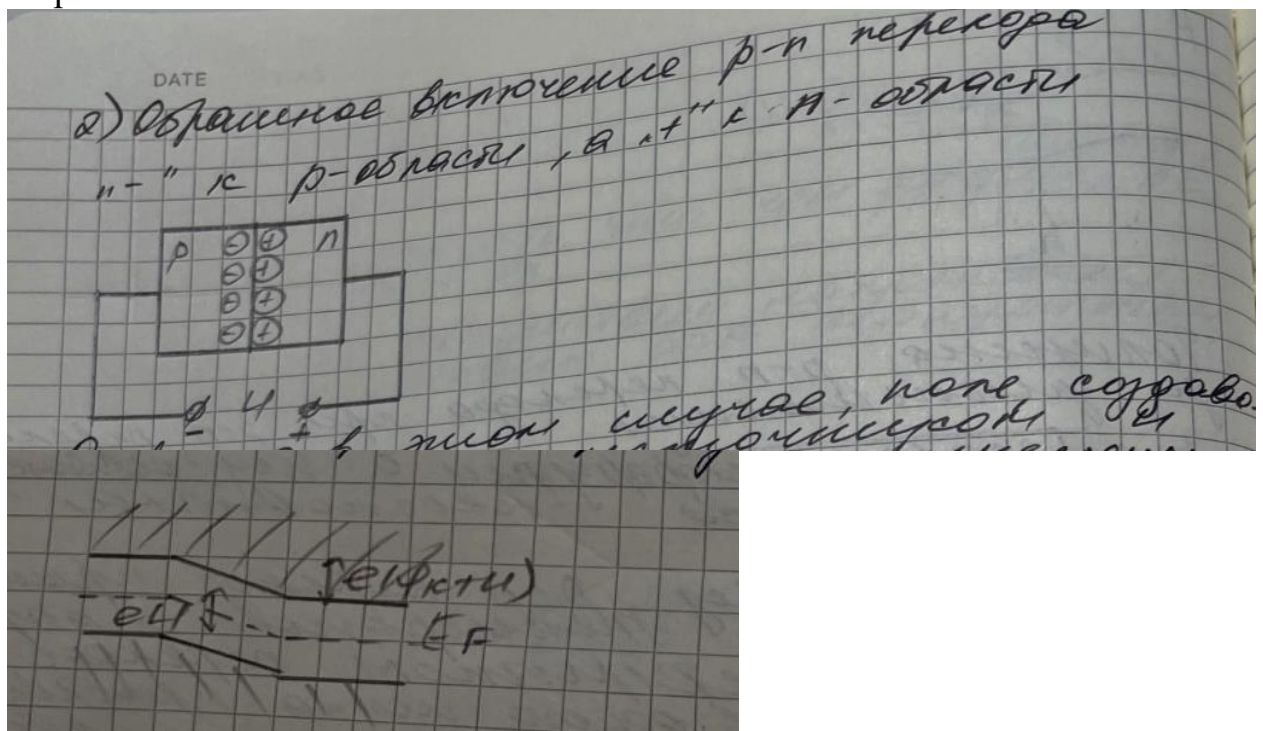 DATE
2) Обратное включение p-n перехода
„-" к p-области, а „+" к n-области
p ⊖ ⊕ n
⊖ ⊕
⊖ ⊕
⊖ ⊕
- U +
в этом случае, поле создава-
источником U
e(φк+U)
EF